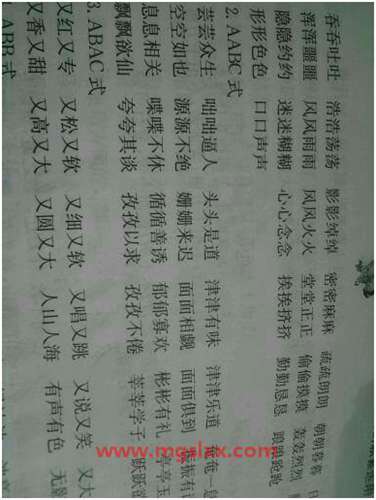 吞吞吐吐 浩浩荡荡 影影绰绰 密密麻麻 疏疏朗朗 朝朝暮暮
浑浑噩噩 风风雨雨 风风火火 堂堂正正 偷偷摸摸 轰轰烈烈
隐隐约约 迷迷糊糊 心心念念 挨挨挤挤 勤勤恳恳
形形色色 口口声声
2. AABC 式
芸芸众生 咄咄逼人 头头是道 津津有味 津津乐道 奄奄一
空空如也 源源不绝 姗姗来迟 面面相觑 面面俱到
息息相关 喋喋不休 循循善诱 郁郁寡欢 彬彬有礼 亭亭玉
飘飘欲仙 夸夸其谈 孜孜以求 孜孜不倦 莘莘学子
3. ABAC 式
又红又专 又松又软 又细又软 又唱又跳 又说又笑 又大
又香又甜 又高又大 又圆又大 人山人海 有声有色 无影
ABB 式